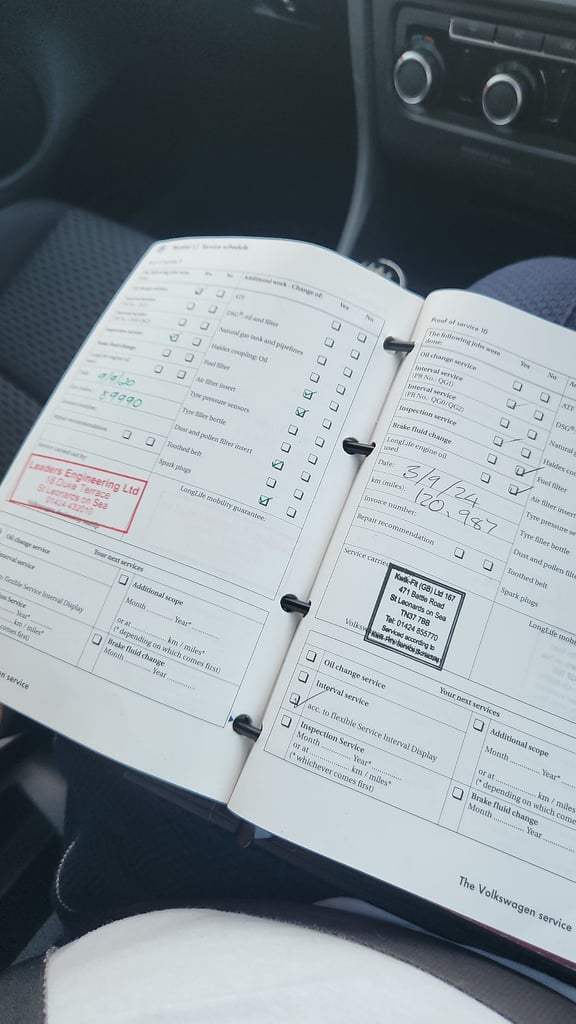 Service schedule
The following jobs were
Yes
No
Additional work - Change of:
Yes
No
ATF
DSG® oil and filter
Natural gas tank and pipelines
Haldex coupling: Oil
Fuel filter
Air filter insert
Tyre pressure sensors
Tyre filler bottle
Dust and pollen filter insert
Toothed belt
Spark plugs
LongLife mobility guarantee:
9/9/20
Leaders Engineering Ltd
18 Duke Terrace
St Leonards on Sea
01424 432010
Oil change service
Your next services
Additional scope
Month Year*
or at km / miles*
(*depending on which comes first)
Brake fluid change
Month Year
to flexible Service Interval Display
Year*
km / miles*
comes first)
Proof of service 10
The following jobs were
done:
Yes
No
Oil change service
Interval service
(PR No.: QG1)
Interval service
(PR No.: QG0/QG2)
Inspection service
Brake fluid change
LongLife engine oil
used
Date: 3/9/24
km (miles): 120,987
Invoice number:
Repair recommendation
ATF
DSG®
Natural
Haldex
Fuel filter
Air filter insert
Tyre pressure
Tyre filler bottle
Dust and pollen
Toothed belt
Spark plugs
Service carried
Kwik-Fit (GB) Ltd 167
471 Battle Road
St Leonards on Sea
TN37 7BB
Tel: 01424 855770
Serviced according to
LongLife
Your next services
Oil change service
Interval service
acc. to flexible Service Interval Display
Inspection Service
Month Year*
or at km / miles*
(*whichever comes first)
Additional scope
Month Year*
or at km / miles*
(*depending on which comes
Brake fluid change
Month Year
The Volkswagen service